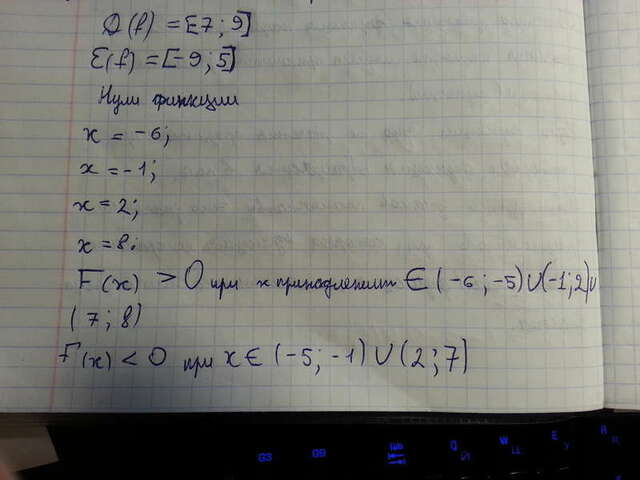 D(f) = [7; 9]
E(f) = [-9; 5]
Нули функции
x = -6;
x = -1;
x = 2;
x = 8.
F(x) > 0 при x принадлежит ∈ (-6; -5) ∪ (-1; 2) ∪
(7; 8)
F(x) < 0 при x ∈ (-5; -1) ∪ (2; 7)
G3 G9 Tab Q Й W Ц E У R К